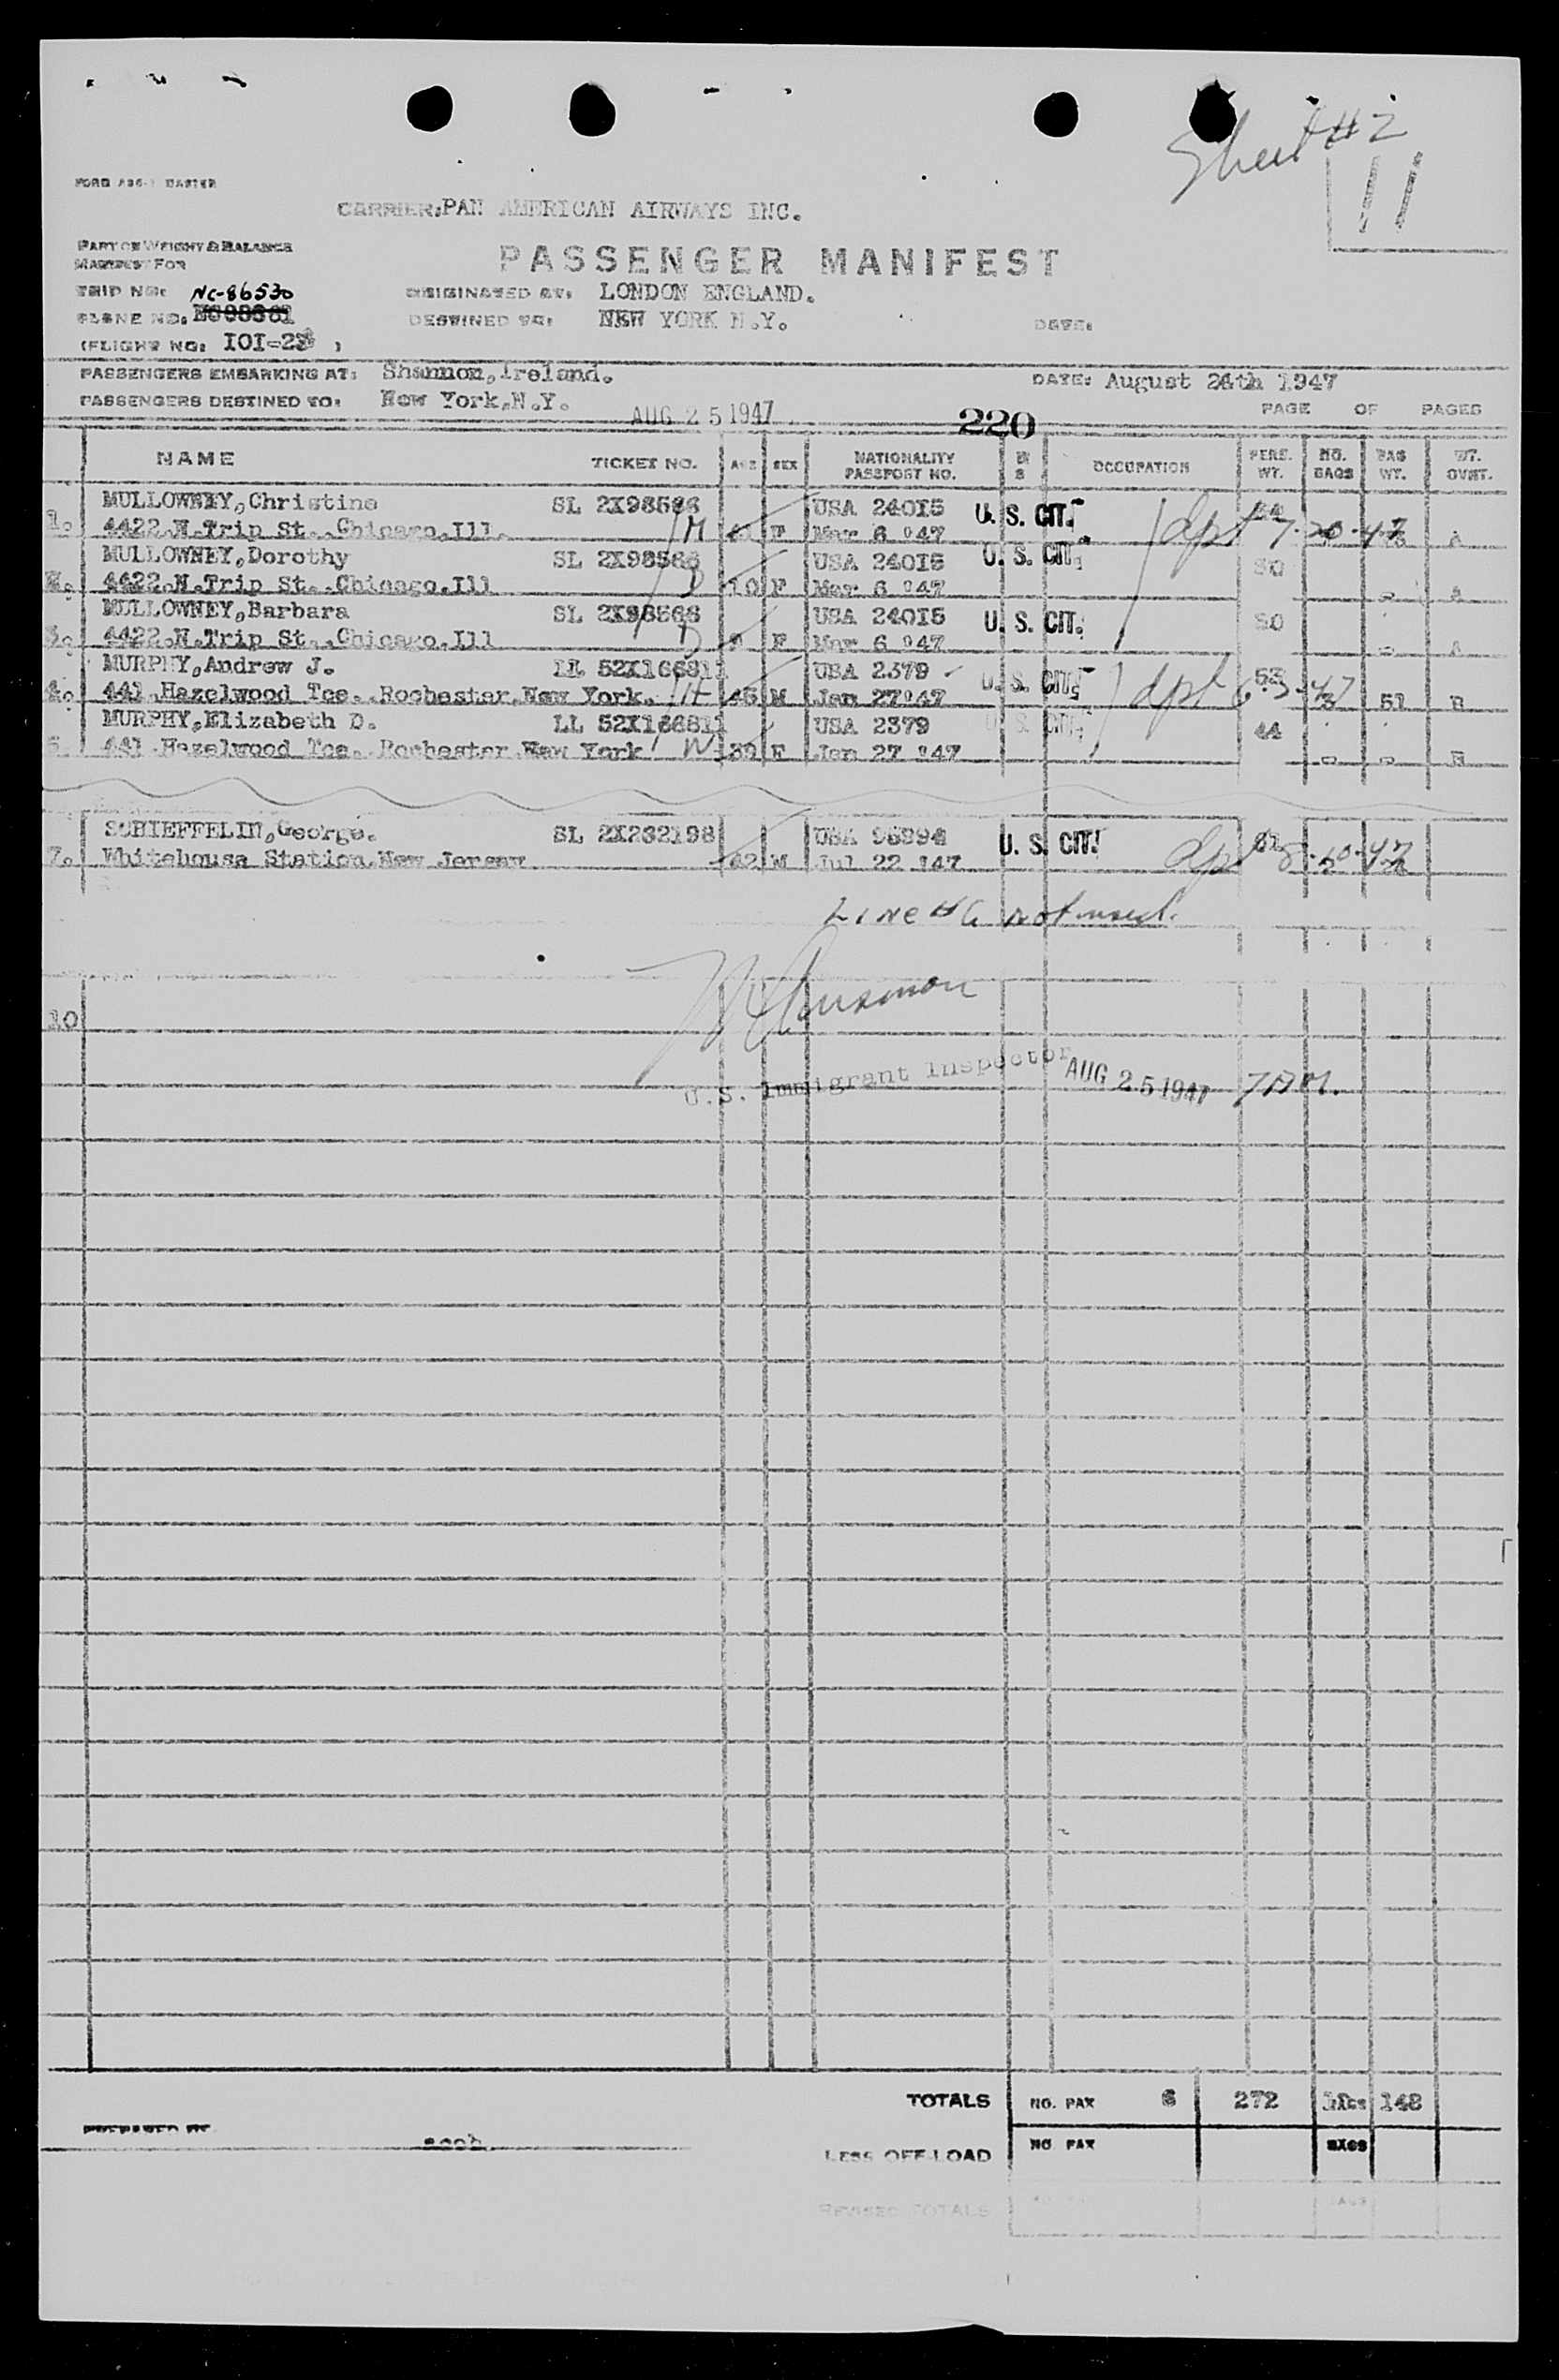 Sheet #2
11
CARRIER: PAN AMERICAN AIRWAYS INC.
PART ON WEIGHT & BALANCE
MANIFEST FOR
PASSENGER MANIFEST
TRIP NO: NC-86530
ORIGINATED AT: LONDON ENGLAND.
PLANE NO:
DESTINED TO: NEW YORK N.Y.
DATE:
(FLIGHT NO: IOI-2 )
PASSENGERS EMBARKING AT: Shannon, Ireland.
DATE: August 24th 1947
PASSENGERS DESTINED TO: New York, N.Y.
AUG 25 1947
220
PAGE OF PAGES
NAME TICKET NO. AGE SEX NATIONALITY PASSPORT NO. OCCUPATION PERS. WT. NO. BAGS BAG WT. WT. OVWT.
MULLOWNEY, Christine SL 2X98566 USA 24015 U. S. CIT.
1. 4422.N.Trip St..Chicago.Ill. M F Mar 6 '47 dpt 7-20-47 A
MULLOWNEY, Dorothy SL 2X98566 USA 24015 U. S. CIT.
2. 4422.N.Trip St..Chicago.Ill D 10 F Mar 6 '47 A
MULLOWNEY, Barbara SL 2X98566 USA 24015 U. S. CIT.
3. 4422.N.Trip St..Chicago.Ill D F Mar 6 '47 A
MURPHY, Andrew J. LL 52X166811 USA 2379 U. S. CIT.
4. 441 Hazelwood Tce..Rochester.New York. H 45 M Jan 27'47 dpt 6-3-47 B
MURPHY, Elizabeth D. LL 52X166811 USA 2379 U. S. CIT. 44
5. 441 Hazelwood Tce..Rochester.New York W 39 F Jan 27 '47
SCHIEFFELIN, George. SL 2X232198 USA U. S. CIT.
7. Whitehouse Station.New Jersey 42 M Jul 22 '47 dpt 8-10-47
Line #6 not used.
10
U.S. Immigrant Inspector AUG 25 1947 7AM.
TOTALS NO. PAX 6 272 148
PREPARED BY
LESS OFF-LOAD NO PAX
REVISED TOTALS